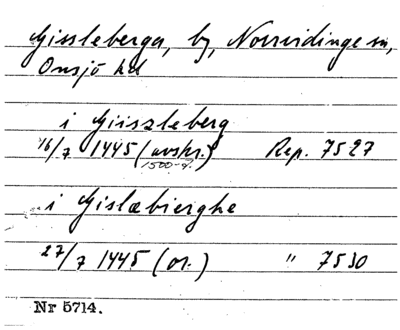 Gissleberga, by, Norrvidinge sn,
Onsjö hd
i Giiszleberg
16/7 1445 (avskr.) Rep. 7527
1500-t.
i Gislæbierghe
27/7 1445 (or.) " 7530
Nr 5714.